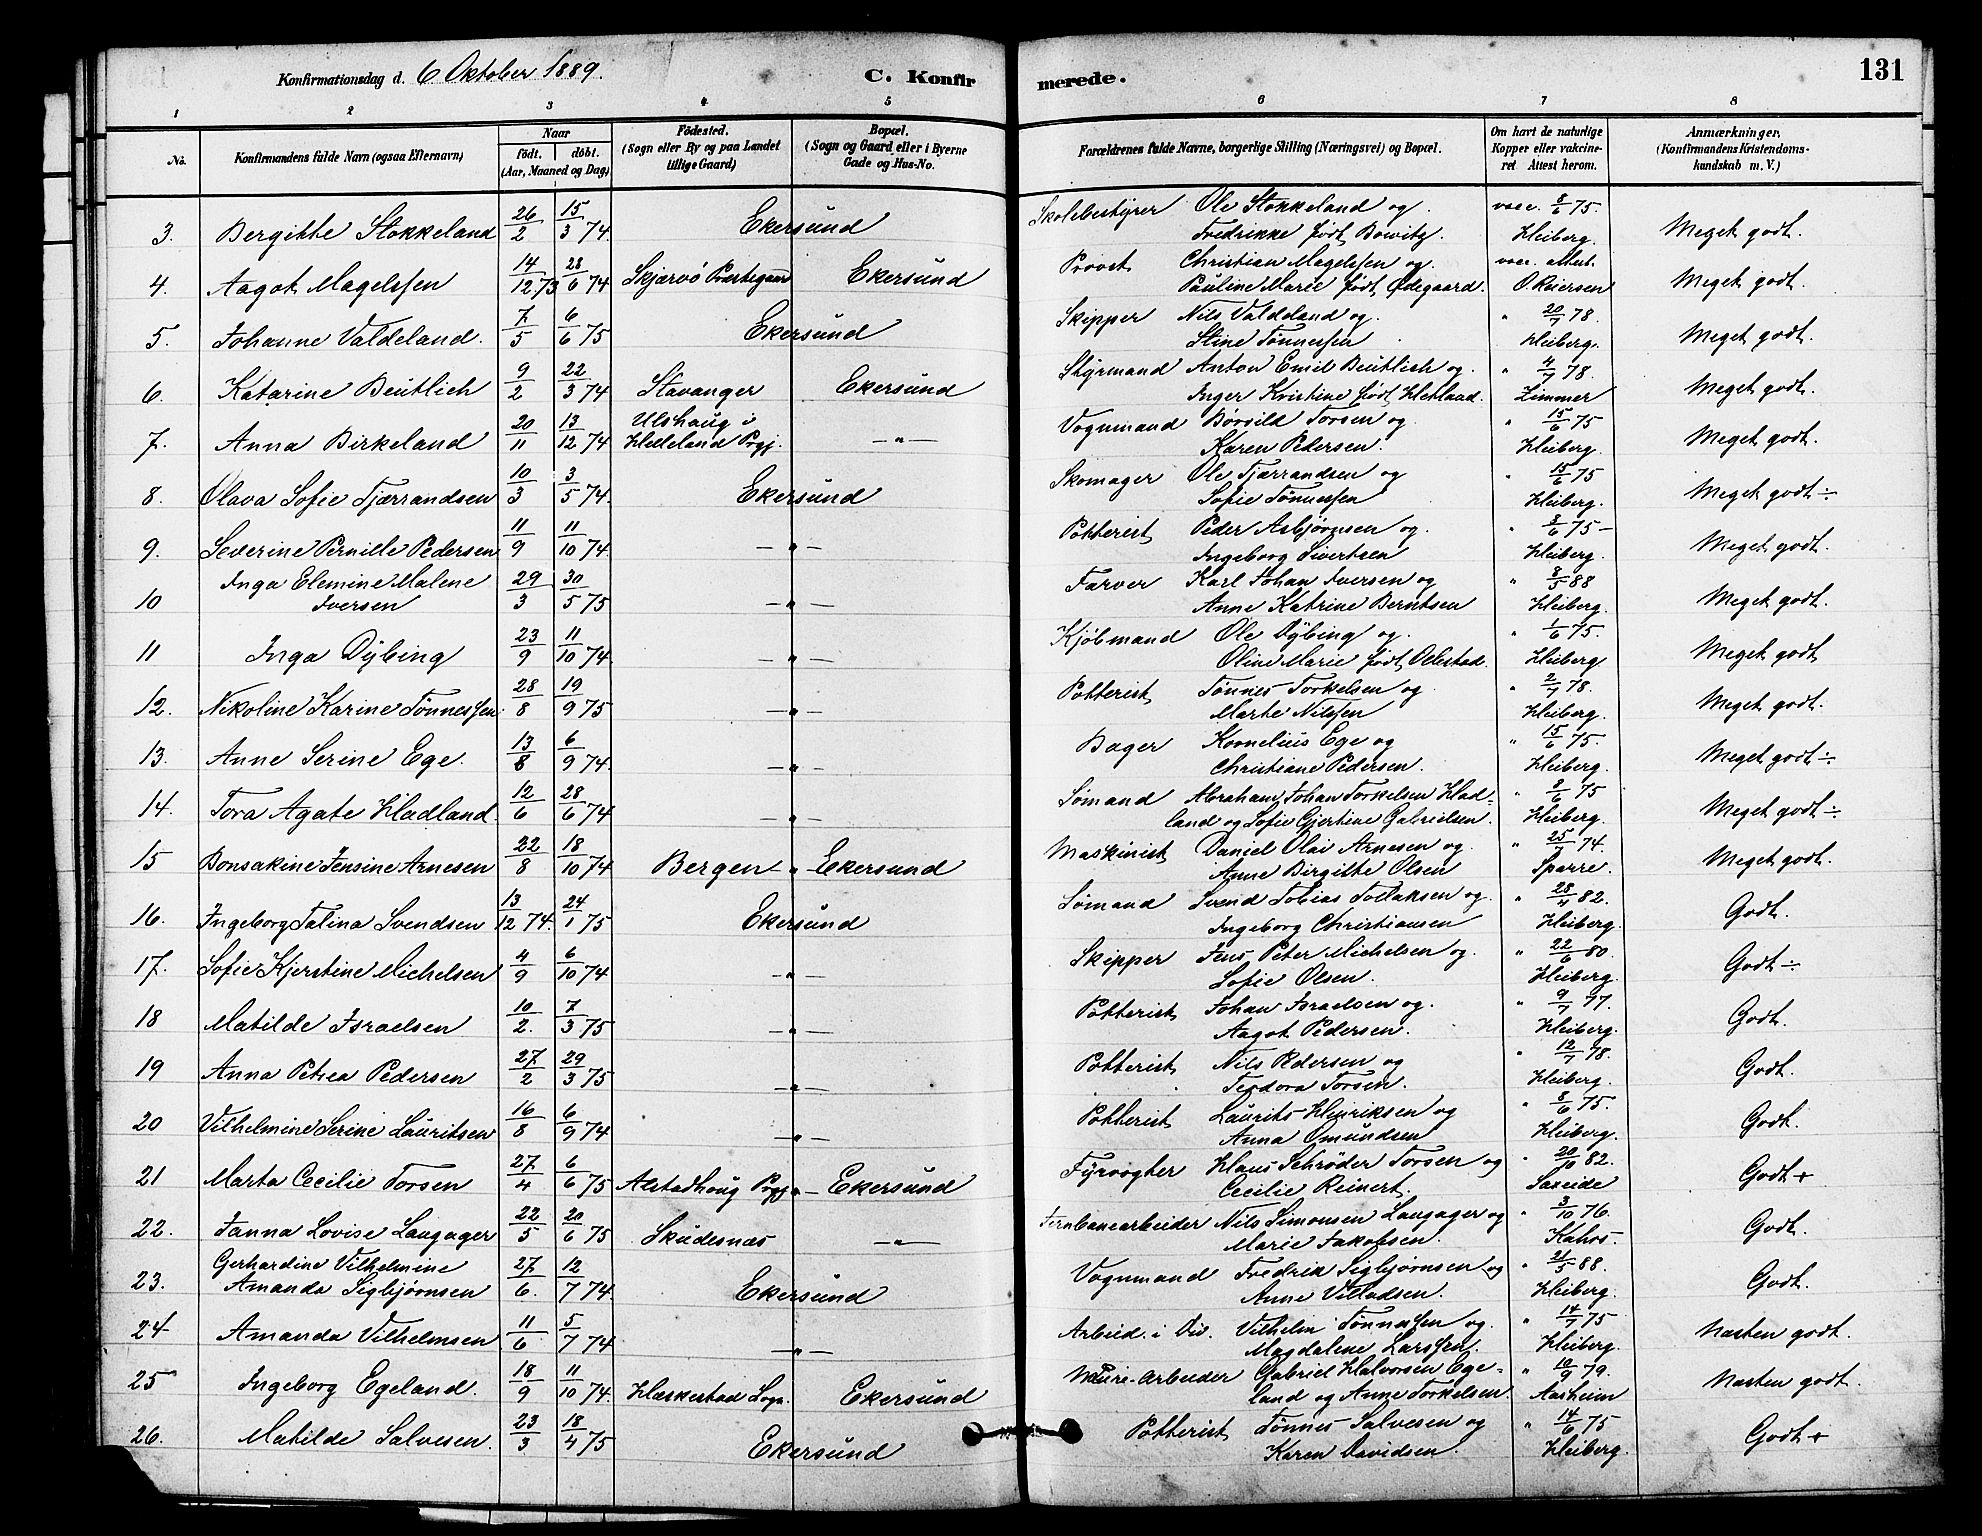 Konfirmationsdag d. 6 Oktober 1889.
C. Konfirmerede.
131
1 2 3 4 5 6 7 8
No.
Konfirmandens fulde Navn (ogsaa Efternavn)
Naar
födt. döbt.
(Aar, Maaned og Dag)
Födested.
(Sogn eller By og paa Landet
tillige Gaard)
Bopæl.
(Sogn og Gaard eller i Byerne
Gade og Hus-No.
Forældrenes fulde Navne, borgerlige Stilling (Næringsvei) og Bopæl.
Om havt de naturlige
Kopper eller vakcine-
ret Attest herom.
Anmærkninger.
(Konfirmandens Kristendoms-
kundskab m. V.)
3. Bergitte Stokkeland 26/2 15/3 74. Ekersund Skolebestyrer Ole Stokkeland og vacc. 8/6 75. Meget godt.
Fredrikke født Bowitz. Heiberg.
4. Aagot Magelssen 14/12 73 28/6 74 Skjervö Prestegaard Ekersund Provst Christian Magelssen og vacc. attest. Meget godt.
Pauline Marie født Ødegaard. O. Reiersen
5. Johanne Valdeland. 7/5 6/6 75 Ekersund Skipper Nils Valdeland og " 20/7 78. Meget godt.
Stine Tönnessen Heiberg.
6. Katarine Beutlich 9/2 22/3 74 Stavanger Ekersund Styrmand Anton Emil Beutlich og " 4/7 78. Meget godt.
Inger Kristine født Hetland. Zimmer
7. Anna Birkeland 20/11 13/12 74 Ulshaug i
Helleland Prgj. — " — Vognmand Børsild Torsen og " 15/6 75 Meget godt.
Karen Pedersen. Heiberg.
8. Olava Sofie Tjærrandsen 10/3 3/5 74. Ekersund Skomager Ole Tjærrandsen og " 15/6 75 Meget godt ÷
Sofie Tönnessen Heiberg.
9. Severine Pernille Pedersen 11/9 11/10 74. — " — Potterist Peder Asbjørnsen og " 8/6 75 — Meget godt.
Ingeborg Sivertsen Heiberg.
10 Inga Elemine Malene
Iversen 29/3 30/5 75 — " — Farver Karl Johan Iversen og " 8/5 88 Meget godt.
Anne Katrine Berntsen Heiberg.
11 Inga Dybing 23/9 11/10 74. — " — Kjöbmand Ole Dybing og " 1/6 75. Meget godt
Oline Marie født Ollestad. Heiberg
12. Nikoline Karine Tönnessen. 28/8 19/9 75 — " — Potterist Tönnes Torkelsen og " 2/7 78. Meget godt.
Marte Nilssen Heiberg.
13. Anne Serine Ege. 13/8 6/9 74. — " — Bager Kornelius Ege og " 15/6 75. Meget godt ÷
Christiane Pedersen. Heiberg.
14. Tora Agate Hladland. 12/6 28/6 74 — " — Sømand Abraham Johan Torkelsen Hlad- " 8/6 75 Meget godt ÷
land og Sofie Gjertine Gabrielsen. Heiberg.
15 Bonsakine Jensine Arnesen 22/8 18/10 74 Bergen — " — Ekersund Maskinist Daniel Olai Arnesen og " 25/7 74. Meget godt.
Anne Birgitte Olsen Sparre.
16. Ingeborg Talina Svendsen 13/12 74. 24/1 75 Ekersund Sømand Svend Tobias Tollaksen og " 28/4 82. Godt.
Ingeborg Christiansen Heiberg.
17. Sofie Kjerstine Michelsen 4/9 6/10 74 — " — Skipper Jens Peter Michelsen og " 22/6 80. Godt ÷
Sofie Olsen. Heiberg.
18 Matilde Israelsen 10/2. 7/3 75 — " — Potterist Johan Israelsen og " 9/7 77. Godt.
Aagot Pedersen. Heiberg.
19 Anna Petrea Pedersen 27/2 29/3 75 — " — Potterist Nils Pedersen og " 12/7 78. Godt.
Teodora Torsen. Heiberg.
20 Vilhelmine Serine Lauritsen 16/8 6/9 74 — " — Potterist Laurits Henriksen og " 8/6 75. Godt.
Anna Omundsen Heiberg.
21 Marta Cecilie Torsen 27/4 6/6 75 Alstadhoug Prgj " — Ekersund Fyrvogter Klaus Schrøder Torsen og " 20/10 82. Godt +
Cecilie Reinert. Saxeide
22. Janna Lovise Laugager 22/5 20/6 75 Skudesnæs — " — Jernbanearbeider Nils Simonsen Laugager og " 3/10 76. Godt.
Marie Jakobsen. Kahrs.
23. Gerhardine Vilhelmine
Amanda Sigbjørnsen 27/6. 12/7 74. Ekersund Vognmand Fredrik Sigbjørnsen og " 21/5 88. Godt.
Anne Villadsen. Heiberg.
24 Amanda Vilhelmsen 11/6 5/7 74 — " — Arbeid. i Div. Vilhelm Tønnessen og " 14/7 75 Næsten godt.
Magdalene Larssen. Heiberg.
25 Ingeborg Egeland. 18/9 11/10 74. Heskestad Sogn. Ekersund Mure-Arbeider Gabriel Halvorsen Ege- " 10/9 79. Næsten godt.
land og Anne Torkelsen. Aarheim
26. Matilde Salvesen. 23/3 18/4 75 Ekersund Potterist Tønnes Salvesen og " 14/6 75 Godt +
Karen Davidsen. Heiberg.